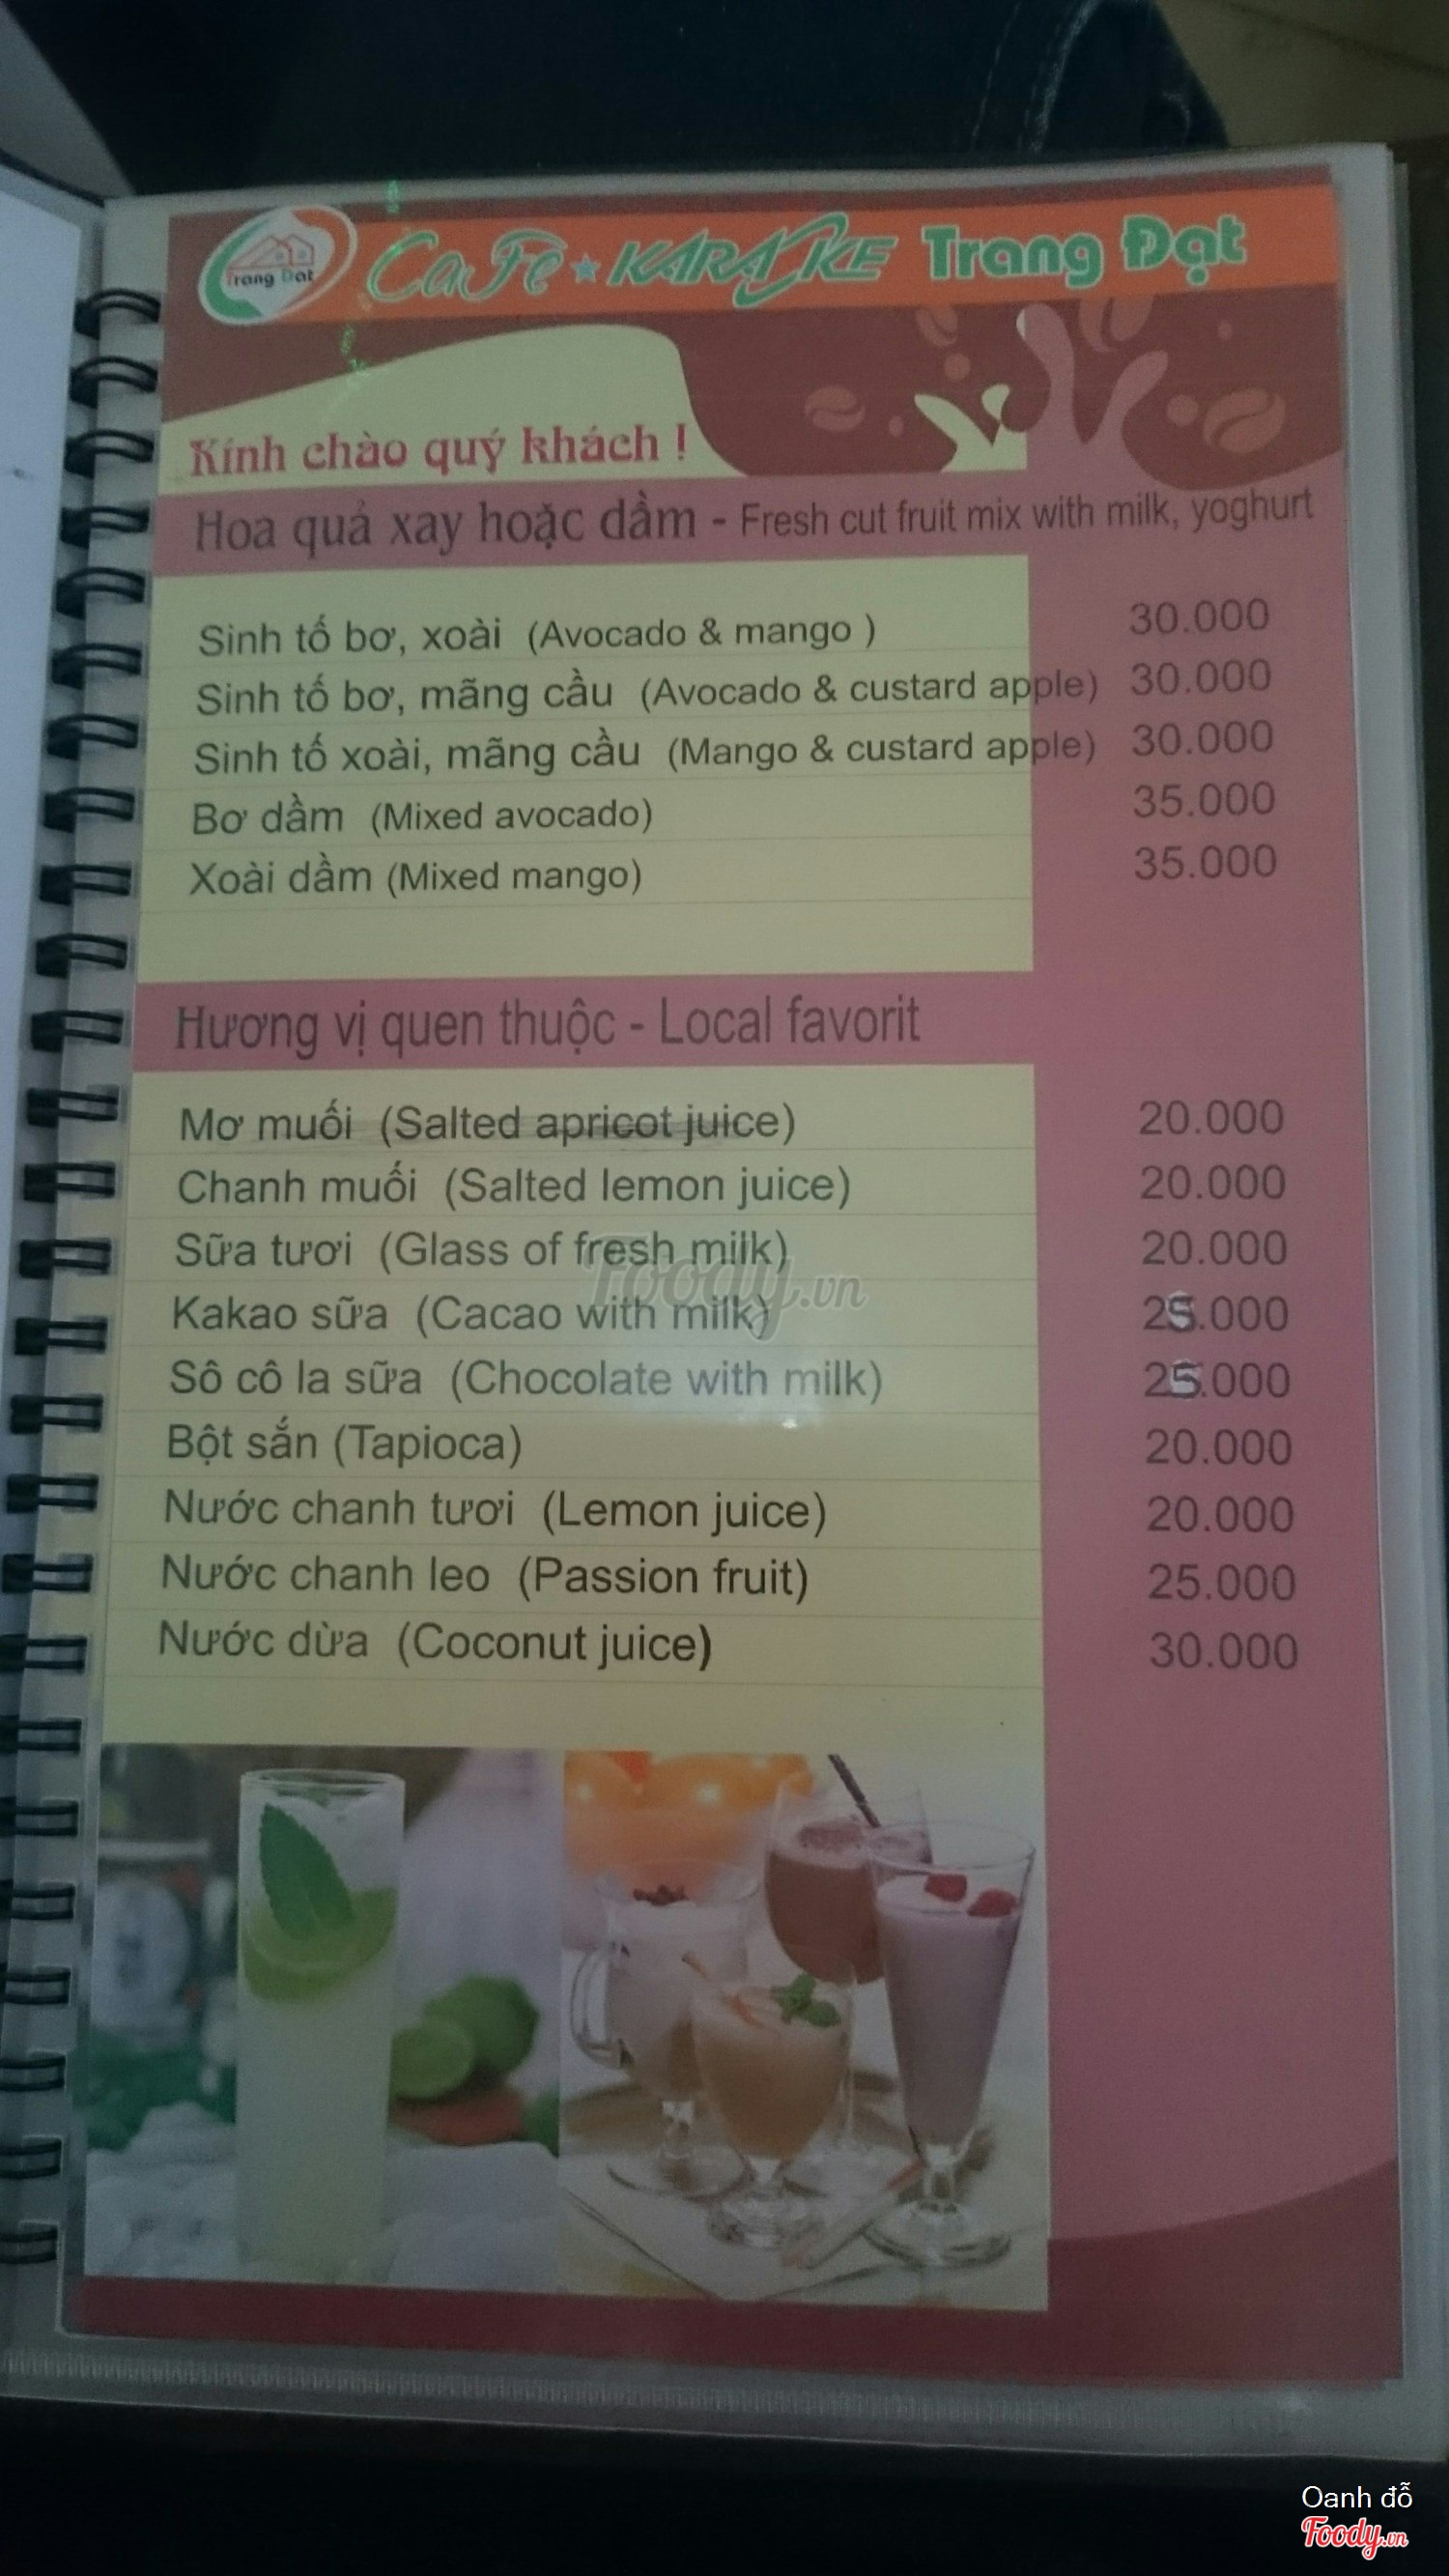 Trang Đạt
CaFe ★ KARAOKE Trang Đạt
Kính chào quý khách !
Hoa quả xay hoặc dầm - Fresh cut fruit mix with milk, yoghurt
Sinh tố bơ, xoài (Avocado & mango ) 30.000
Sinh tố bơ, mãng cầu (Avocado & custard apple) 30.000
Sinh tố xoài, mãng cầu (Mango & custard apple) 30.000
Bơ dầm (Mixed avocado) 35.000
Xoài dầm (Mixed mango) 35.000
Hương vị quen thuộc - Local favorit
Mơ muối (Salted apricot juice) 20.000
Chanh muối (Salted lemon juice) 20.000
Sữa tươi (Glass of fresh milk) 20.000
Foody.vn
Kakao sữa (Cacao with milk) 25.000
Sô cô la sữa (Chocolate with milk) 25.000
Bột sắn (Tapioca) 20.000
Nước chanh tươi (Lemon juice) 20.000
Nước chanh leo (Passion fruit) 25.000
Nước dừa (Coconut juice) 30.000
Oanh đỗ
Foody.vn